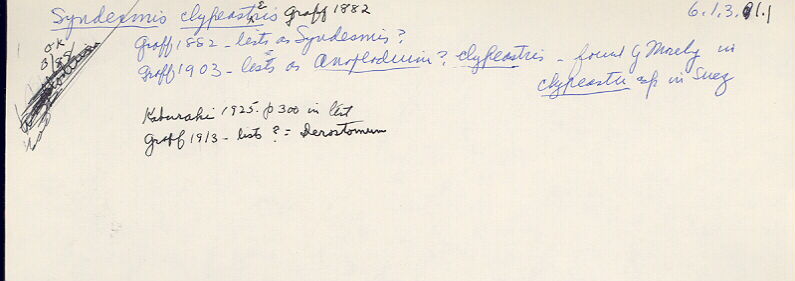 Syndesmis clypeastris Graff 1882
6.1.3.91.1
O.K.
8/88
Graff 1882 - lists as Syndesmis?
Graff 1903 - lists as Anoplodium? clypeastris - found by Moseby in
clypeaster sp in Suez
Kaburaki 1925 p 300 in list
Graff 1913 - lists ? = Derostomum